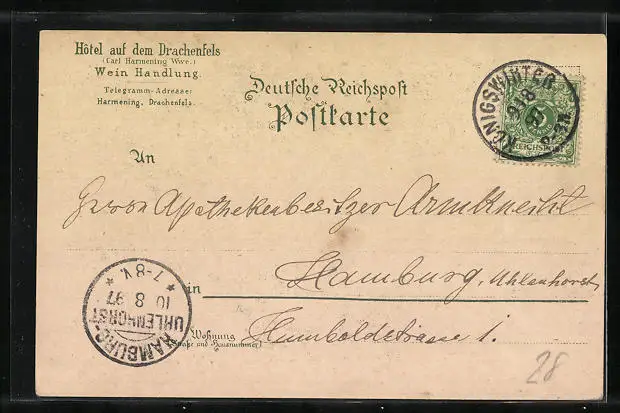 Hôtel auf dem Drachenfels
(Carl Harmening Wwe.)
Wein Handlung.
Telegramm-Adresse:
Harmening, Drachenfels.
Deutsche Reichspost
Postkarte
KÖNIGSWINTER
9 8
97
REICHSPOST
An
Herrn Apothekenbesitzer Armknecht
in Hamburg, Uhlenhorst
Wohnung
(Straße und Hausnummer)
Humboldtstrasse 1.
HAMBURG-
UHLENHORST
10 8 97
* 7-8V. *
28